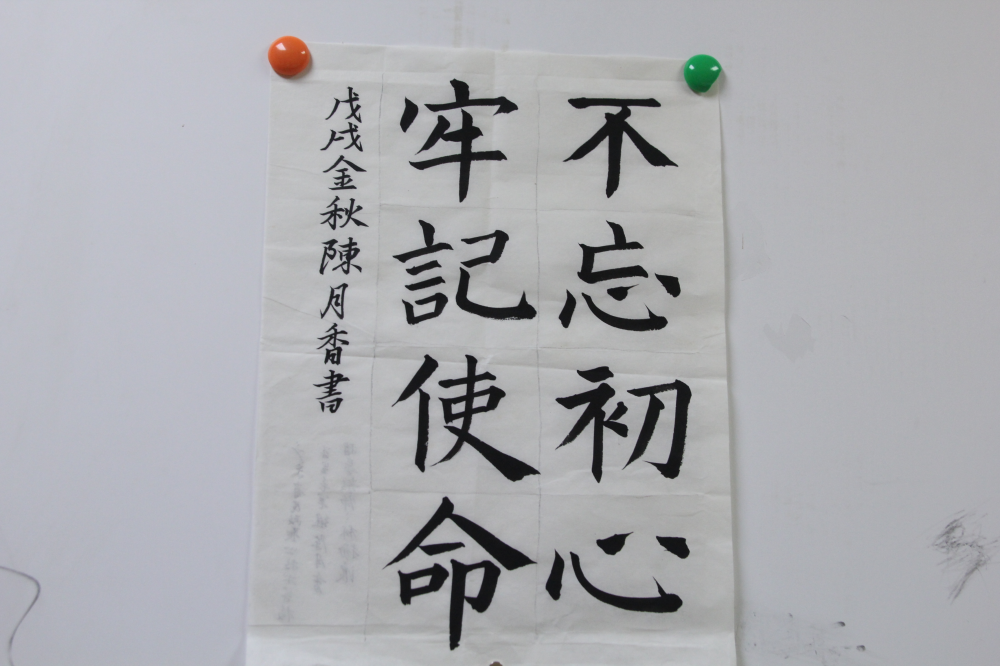 不忘初心
牢記使命
戊戌金秋陳月香書